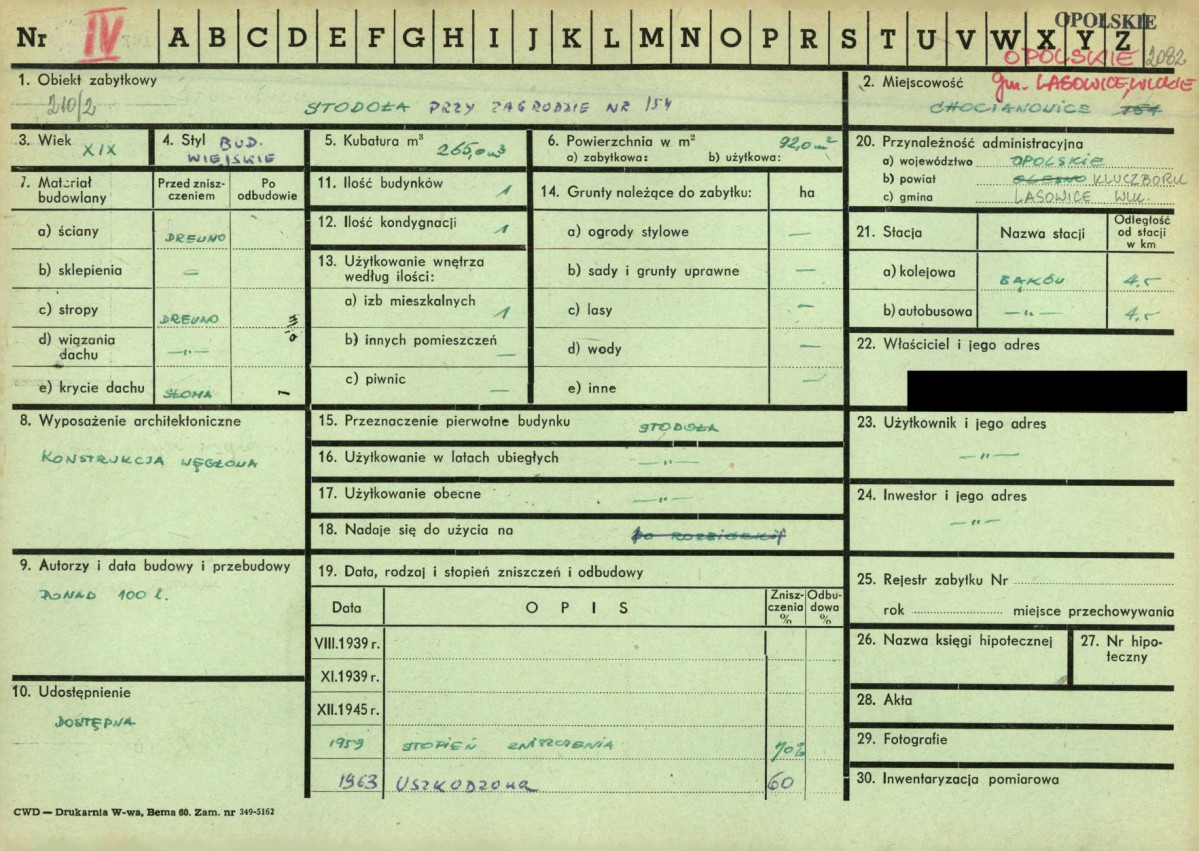 OPOLSKIE
Nr IV A B C D E F G H I J K L M N O P R S T U V W X Y Z
OPOLSKIE 2082
1. Obiekt zabytkowy
210/2
STODOŁA PRZY ZAGRODZIE NR 154
2. Miejscowość gm. LASOWICE WLKIE
CHOCIANOWICE 154
3. Wiek XIX
4. Styl BUD. WIEJSKIE
5. Kubatura m³ 265,0 m³
6. Powierzchnia w m² 92,0 m²
a) zabytkowa: b) użytkowa:
7. Materiał budowlany
Przed zniszczeniem
Po odbudowie
a) ściany DREWNO
b) sklepienia –
c) stropy DREWNO
d) wiązania dachu –"–
e) krycie dachu SŁOMA
11. Ilość budynków 1
12. Ilość kondygnacji 1
13. Użytkowanie wnętrza według ilości:
a) izb mieszkalnych 1
b) innych pomieszczeń —
c) piwnic —
14. Grunty należące do zabytku: ha
a) ogrody stylowe —
b) sady i grunty uprawne —
c) lasy —
d) wody —
e) inne —
20. Przynależność administracyjna
a) województwo OPOLSKIE
b) powiat OLESNO KLUCZBORK
c) gmina LASOWICE WLK.
21. Stacja
Nazwa stacji
Odległość od stacji w km
a) kolejowa BĄKÓW 4,5
b) autobusowa –"– 4,5
22. Właściciel i jego adres
8. Wyposażenie architektoniczne
KONSTRUKCJA WĘGŁOWA
15. Przeznaczenie pierwotne budynku STODOŁA
16. Użytkowanie w latach ubiegłych –"–
17. Użytkowanie obecne –"–
18. Nadaje się do użycia na DO ROZBIÓRKI
23. Użytkownik i jego adres
–"–
24. Inwestor i jego adres
–"–
9. Autorzy i data budowy i przebudowy
PONAD 100 l.
10. Udostępnienie
DOSTĘPNA
19. Data, rodzaj i stopień zniszczeń i odbudowy
Data
O P I S
Zniszczenia %
Odbudowa %
VIII.1939 r.
XI.1939 r.
XII.1945 r.
1959 STOPIEŃ ZNISZCZENIA 70%
1963 USZKODZONA 60
25. Rejestr zabytku Nr
rok miejsce przechowywania
26. Nazwa księgi hipotecznej
27. Nr hipoteczny
28. Akta
29. Fotografie
30. Inwentaryzacja pomiarowa
CWD — Drukarnia W-wa, Bema 60. Zam. nr 349-5162